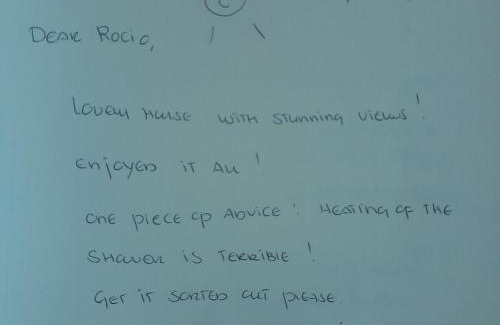 Dear Rocio,
Lovely house with stunning views!
Enjoyed it all!
One piece of advice: heating of the
shower is terrible!
Get it sorted out please.